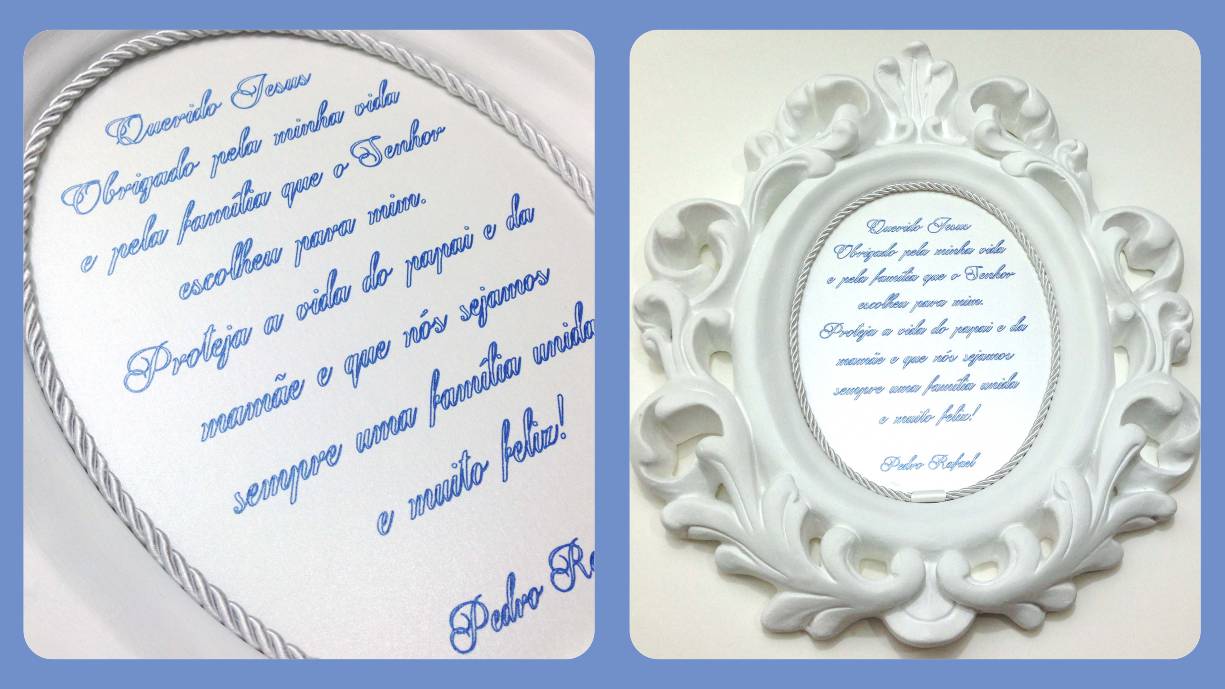 Querido Jesus
Obrigado pela minha vida
e pela família que o Senhor
escolheu para mim.
Proteja a vida do papai e da
mamãe e que nós sejamos
sempre uma família unida
e muito feliz!
Pedro
Querido Jesus
Obrigado pela minha vida
e pela família que o Senhor
escolheu para mim.
Proteja a vida do papai e da
mamãe e que nós sejamos
sempre uma família unida
e muito feliz!
Pedro Rafael